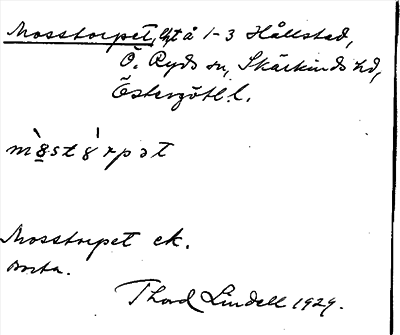 Mosstorpet, lht å 1-3 Hållstad,
Ö. Ryds sn, Skärkinds hd,
Östergötl. l.
mòstórpət
Mosstorpet ek.
borta.
Thord Lindell 1929.